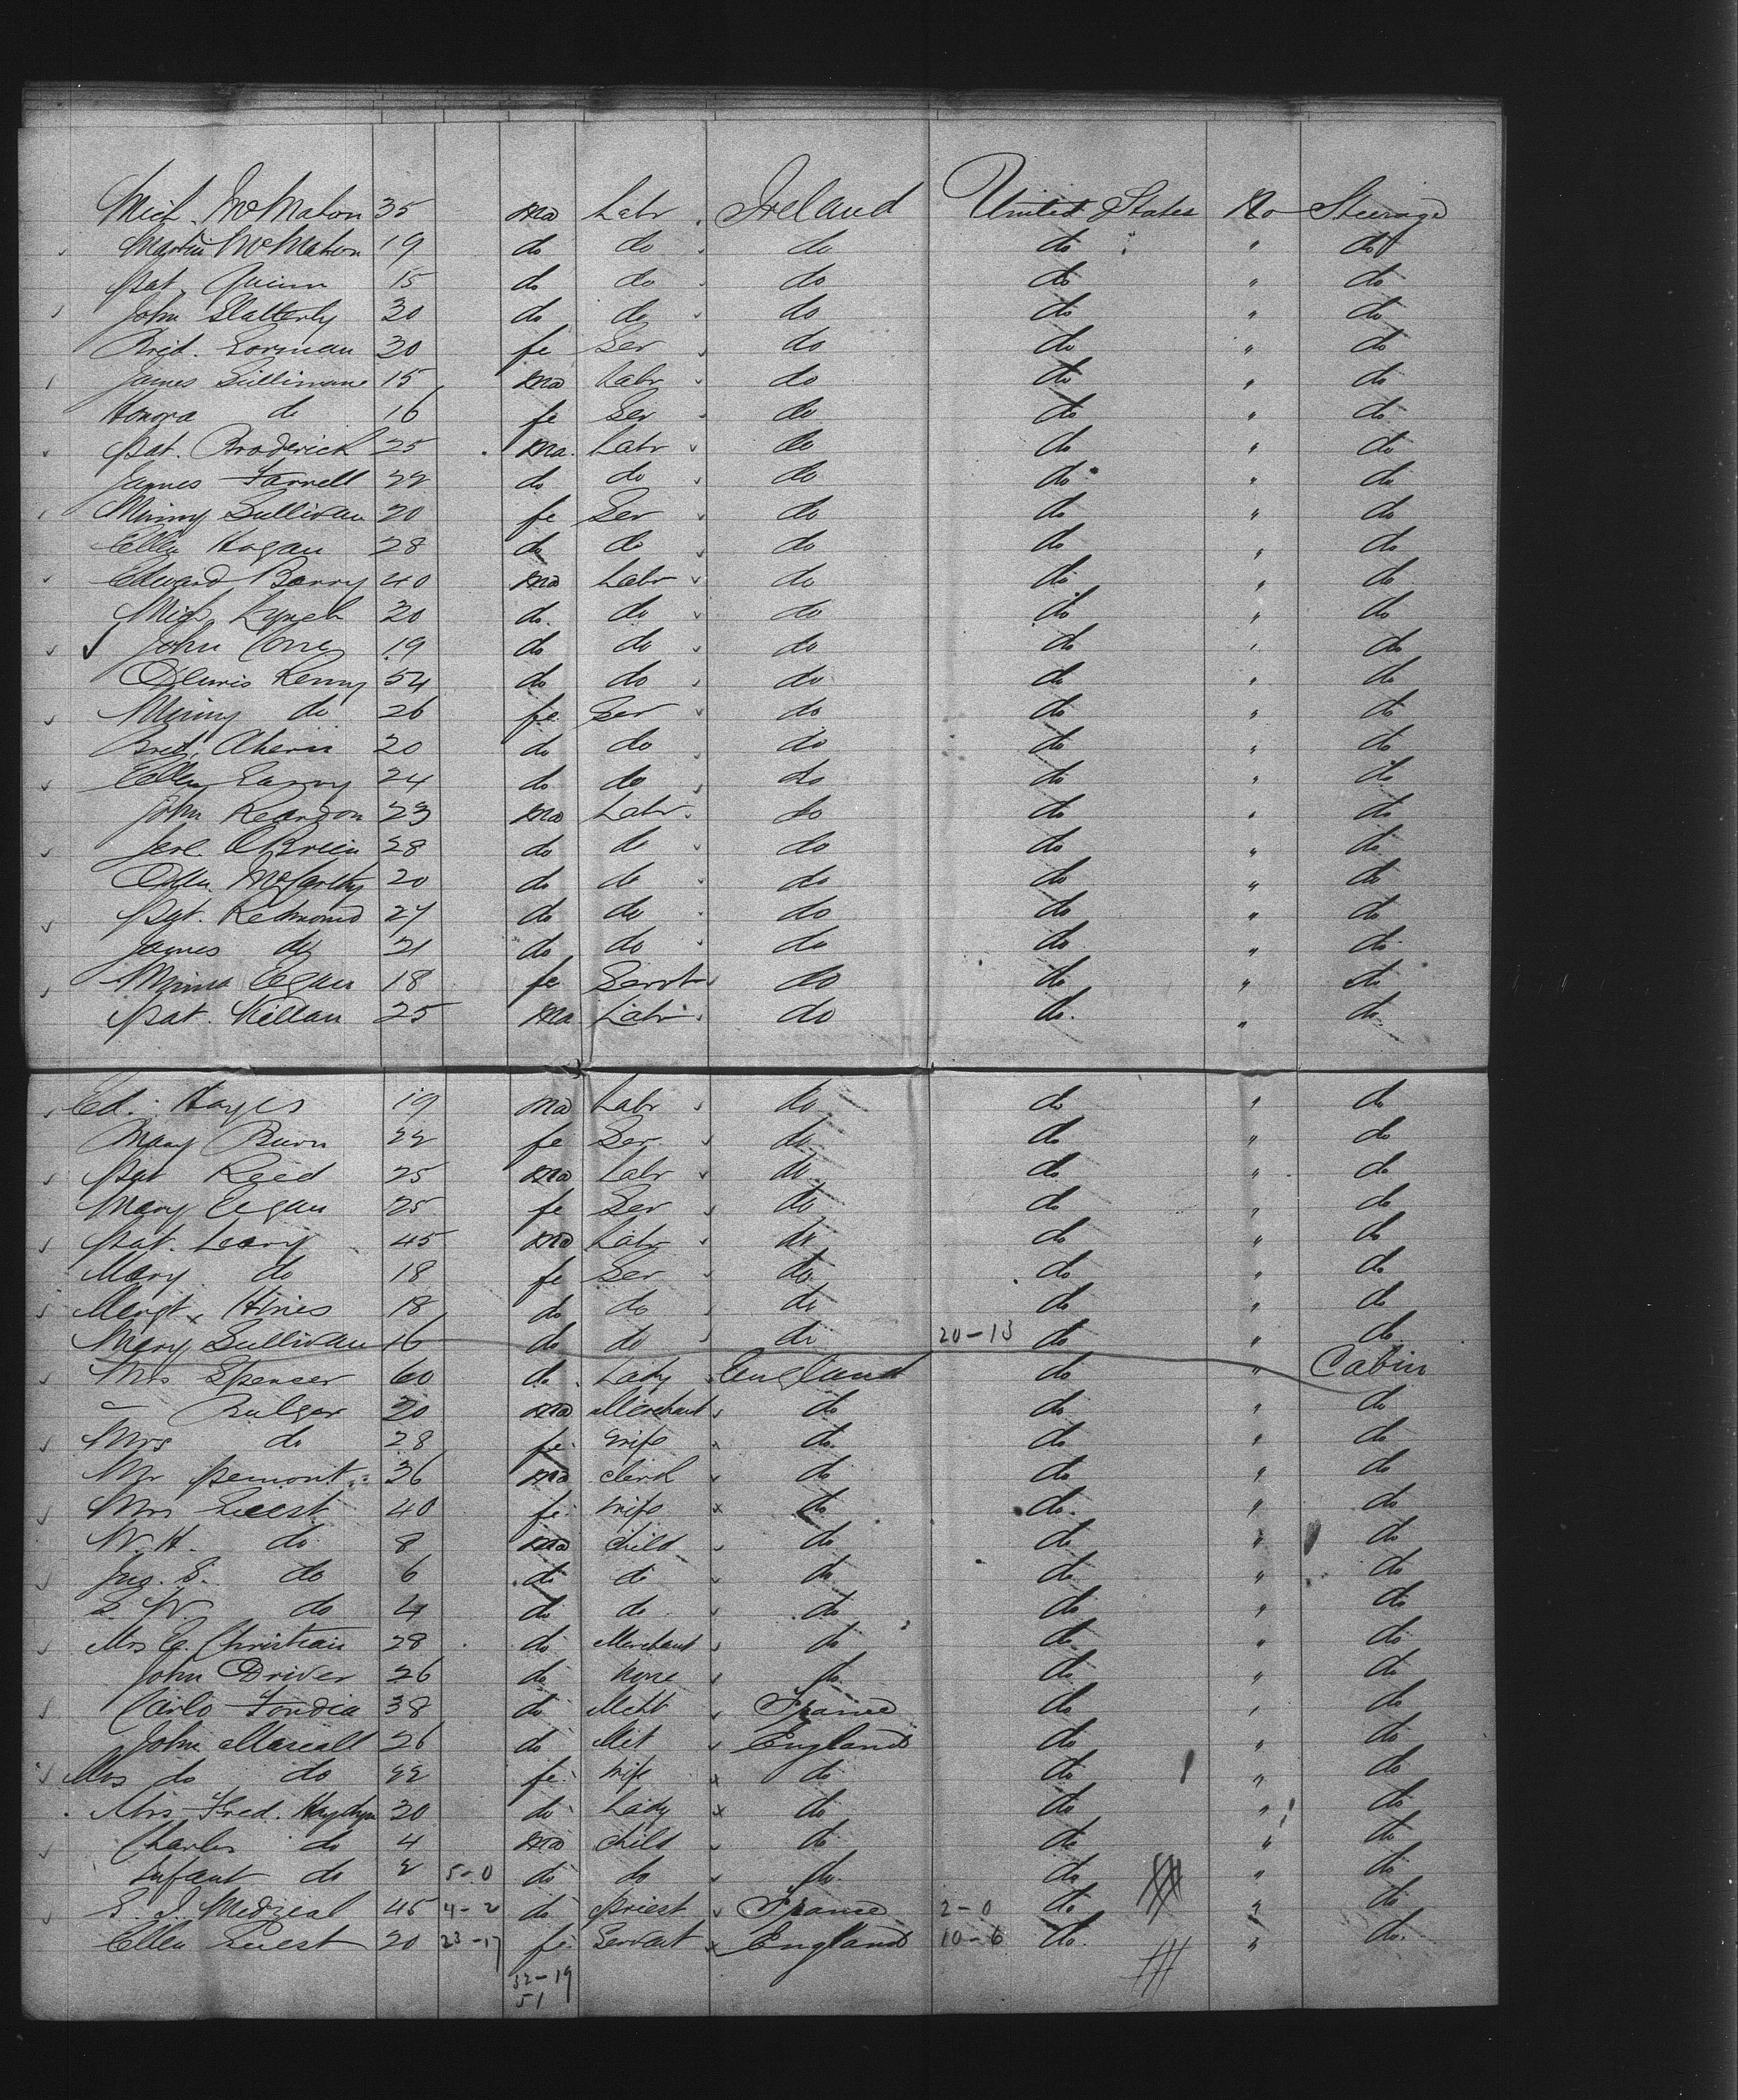 Mich. McMahon 35 ma Labr Ireland United States No Steerage
Martin McMahon 19 do do do do " do
Pat. Quinn 15 do do do do " do
John Slatterly 30 do do do do " do
Brid. Gorman 30 fe Ser do do " do
James Sullivane 15 ma Labr do do " do
Honora do 16 fe Ser do do " do
Pat. Broderick 25 ma. Labr do do " do
James Farrell 22 do do do do " do
Minny Sullivan 20 fe Ser do do " do
Ellen Hogan 28 do do do do " do
Edward Barry 40 ma Labr do do " do
Mich. Lynch 30 do. do do do " do
John 19 do do do do " do
Dennis Kenny 54 do do do do " do
Minny do 26 fe. Ser do do " do
Brid. Ahern 20 do do do do " do
Ellen 24 do do do do " do
John Reardon 23 ma Labr. do do " do
Jere. OBrien 28 do do do do " do
McCarthy 20 do do do do " do
Pat. Redmond 27 do do do do " do
James do 21 do do do do " do
Egan 18 fe Servt do do " do
Pat. Killan 25 ma Labr do do. " do
Ed. Hayes 19 ma Labr do do " do
Mary Burn 22 fe Ser do do " do
Pat Reed 25 ma Labr do do " do
Mary Egan 25 fe Ser do do " do
Pat. Leary 45 ma Labr do do " do
Mary do 18 fe Ser do do " do
Margt. Hines 18 do do do do " do
Mary Sullivan 16 do do do 20-13 do " do
Mrs Spenser 60 do Lady England do " Cabin
Bulger 30 ma Merchant do do " do
Mrs do 28 fe. wife do do " do
Mr Pemont 36 ma clerk do do " do
Mrs Guest 40 fe. wife do do. " do
W. H. do 8 ma child do do " do
Jno. S. do 6 do do do do " do
S W. do 4 do do do do " do
Mrs E. Christian 28 do Merchant do do " do
John Driver 26 do none do do " do
Carlo Fordia 38 do Mcht France do " do
John Mascall 26 do Mct England do " do
Mrs do do 22 fe. wife do do " do
Mrs Fred. 30 do Lady do do " do
Charles do 4 ma child do do " do
Infant do 2 5-0 do do do do " do
S. J. Medzeal 45 4-2 do priest France 2-0 do " do
Ellen Guest 20 23-17 fe. Servant England 10-6 do. " do.
32-19
51